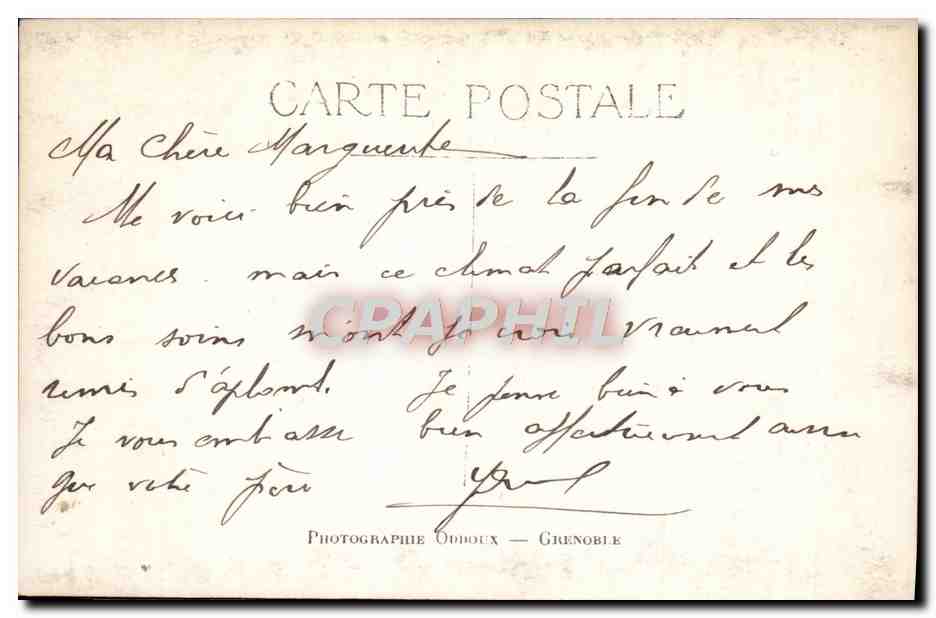 CARTE POSTALE
Ma Chère Marguerite
Me voici bien près de la fin de mes
vacances mais ce climat parfait et les
bons soins m'ont je crois vraiment
CPAPHIL
remis d'aplomb. Je pense bien à vous
Je vous embrasse bien affectueusement ainsi
que votre père
PHOTOGRAPHIE ODDOUX — GRENOBLE